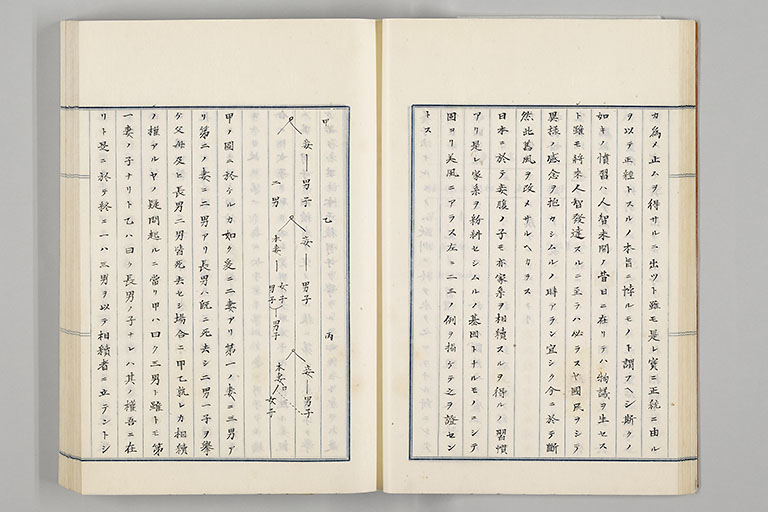 カ為メ止ムヲ得サルニ出ツト雖モ是レ實ニ正統ニ由ル
ヲ以テ正経トスルノ本旨ニ悖ルモノト謂フヘシ斯クノ
如キノ慣習ハ人智未開ノ昔日ニ在リテハ物議ヲ生セス
ト雖モ将来人智發達スルニ至ラハ必ラスヤ國民ヲシテ
異様ノ感念ヲ抱カシムルノ時アラン宜シク今ニ於テ断
然此舊風ヲ改メサルヘカラス
日本ニ於テ妾腹ノ子モ亦家系ヲ相續スルヲ得ルノ習慣
アリ是レ家系ヲ紛糾セシムルノ基因トナルモノニシテ
固ヨリ美風ニアラス左ニ二三ノ例ヲ掲ケテ之ヲ證セン
トス
甲
妾―男子
二男
乙
妾―男子
本妻―
女子
男子
男子
丙
妾―男子
本妻
女子
甲ノ圖ニ於ケルカ如ク爰ニ二妻アリ第一ノ妻ニ三男ア
リ第二ノ妻ニ二男アリ長男ハ既ニ死去シ二男一子ヲ擧
ケ父母及ヒ長男二男皆死去セシ場合ニ甲乙孰レカ相續
ノ權アルヤノ疑問起ルニ當リ甲ハ曰ク三男ト雖トモ第
一妻ノ子ナリト乙ハ曰ク長男ノ子ナレハ其ノ權吾ニ在
リト是ニ於テ終ニ一ハ三男ヲ以テ相續者ニ立テントシ